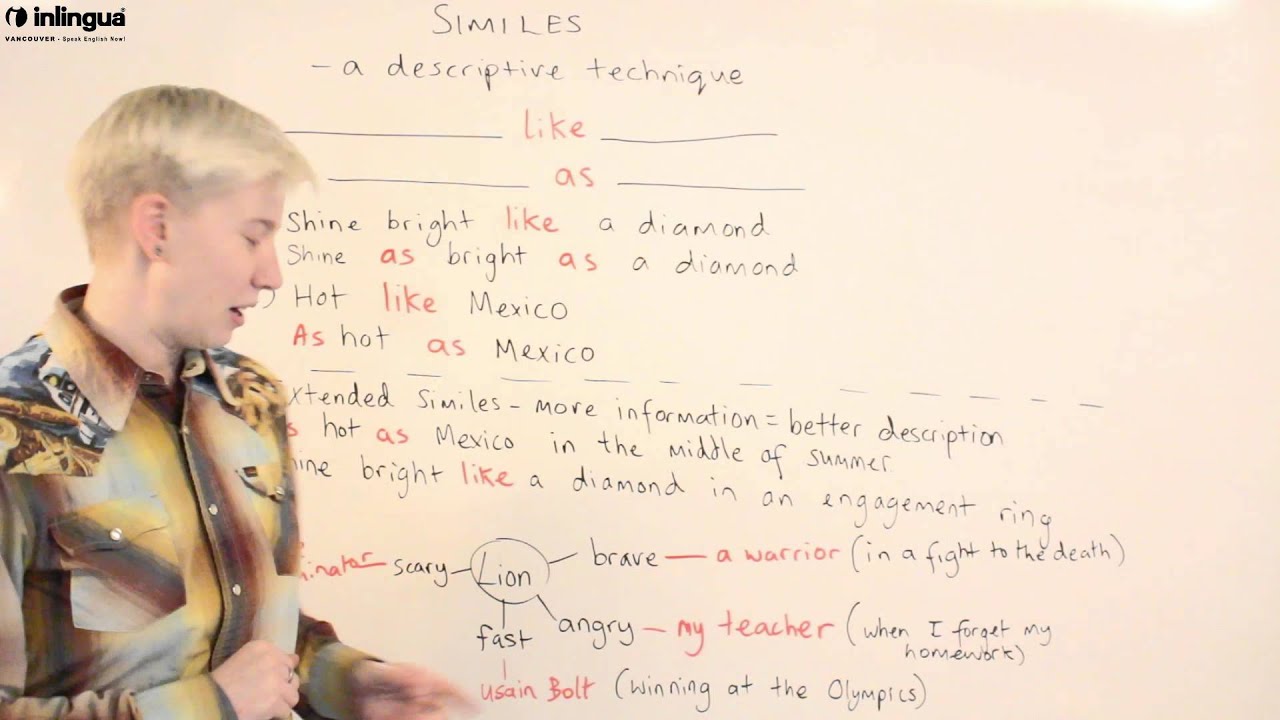 inlingua
VANCOUVER - Speak English Now!
SIMILES
- a descriptive technique
like
as
Shine bright like a diamond
Shine as bright as a diamond
) Hot like Mexico
As hot as Mexico
xtended Similes - more information = better description
s hot as Mexico in the middle of summer
ine bright like a diamond in an engagement ring
inator scary Lion brave — a warrior (in a fight to the death)
fast angry — my teacher (when I forget my
homework)
usain Bolt (winning at the Olympics)